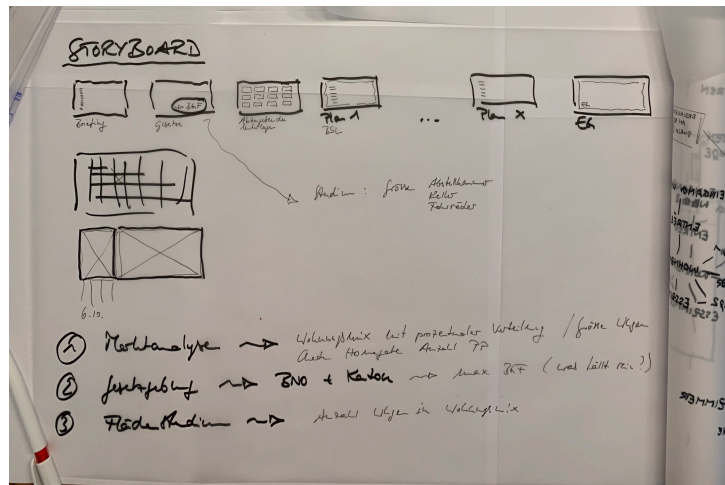 STORYBOARD
Briefing
Gesetze
max BGF
Plan 1
BSL
...
Plan X
EG
EG
Studium : Grösse Abstellkammer
Keller
Fahrräder
6.10.
① Marktanalyse ~> Wohnungsmix mit prozentualer Verteilung / Grösse Whgen
Auch Homegate Anzahl PP
② Gesetzgebung ~> BNO + Kanton ~> max BGF ( was fällt rein ? )
③ Flächenstudium ~> Anzahl Whgen in Wohnungsmix